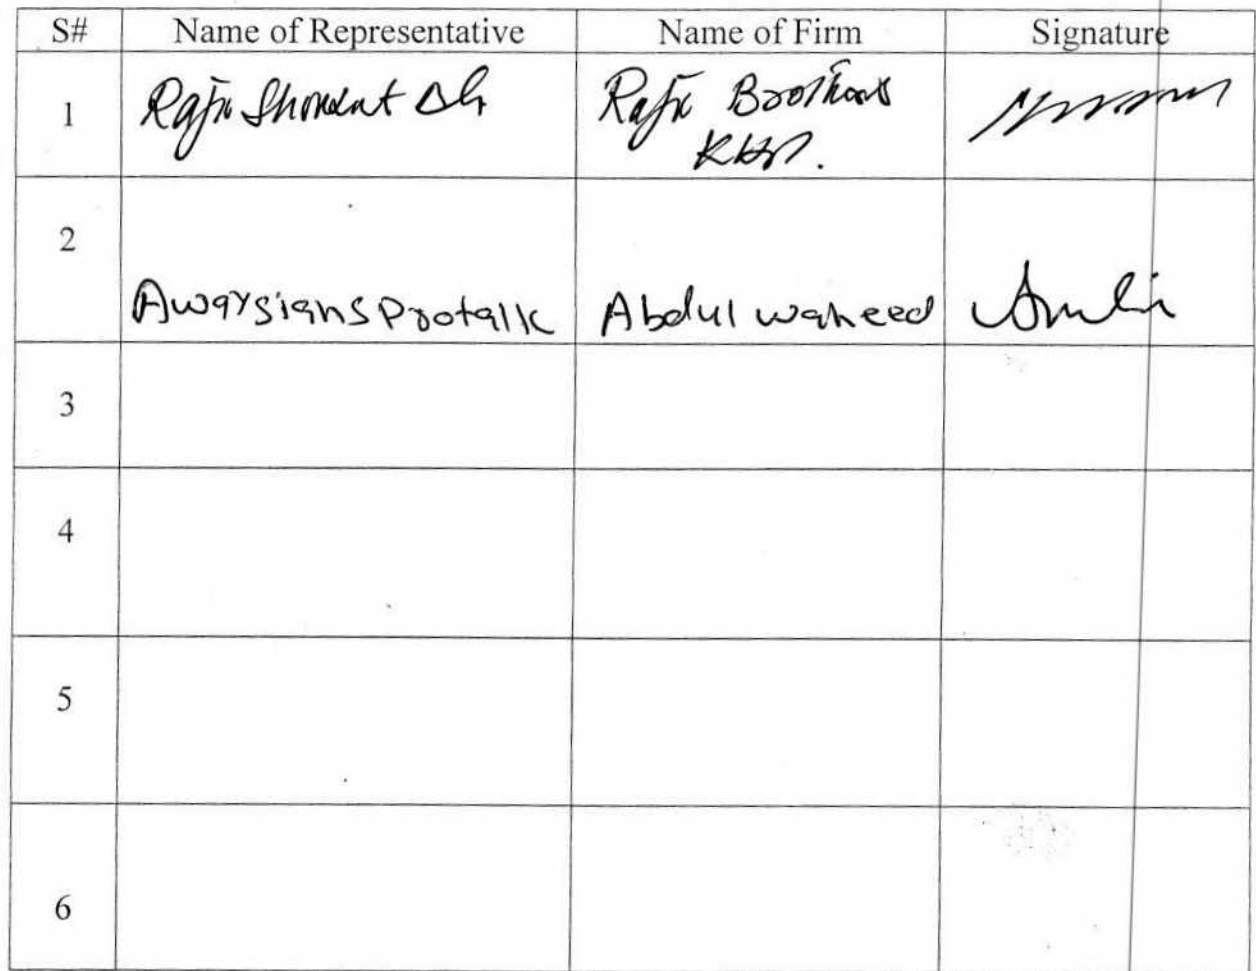 S# Name of Representative Name of Firm Signature
1 Ali Brothers
2
Awaysians Protalk Abdul waheed
3
4
5
6